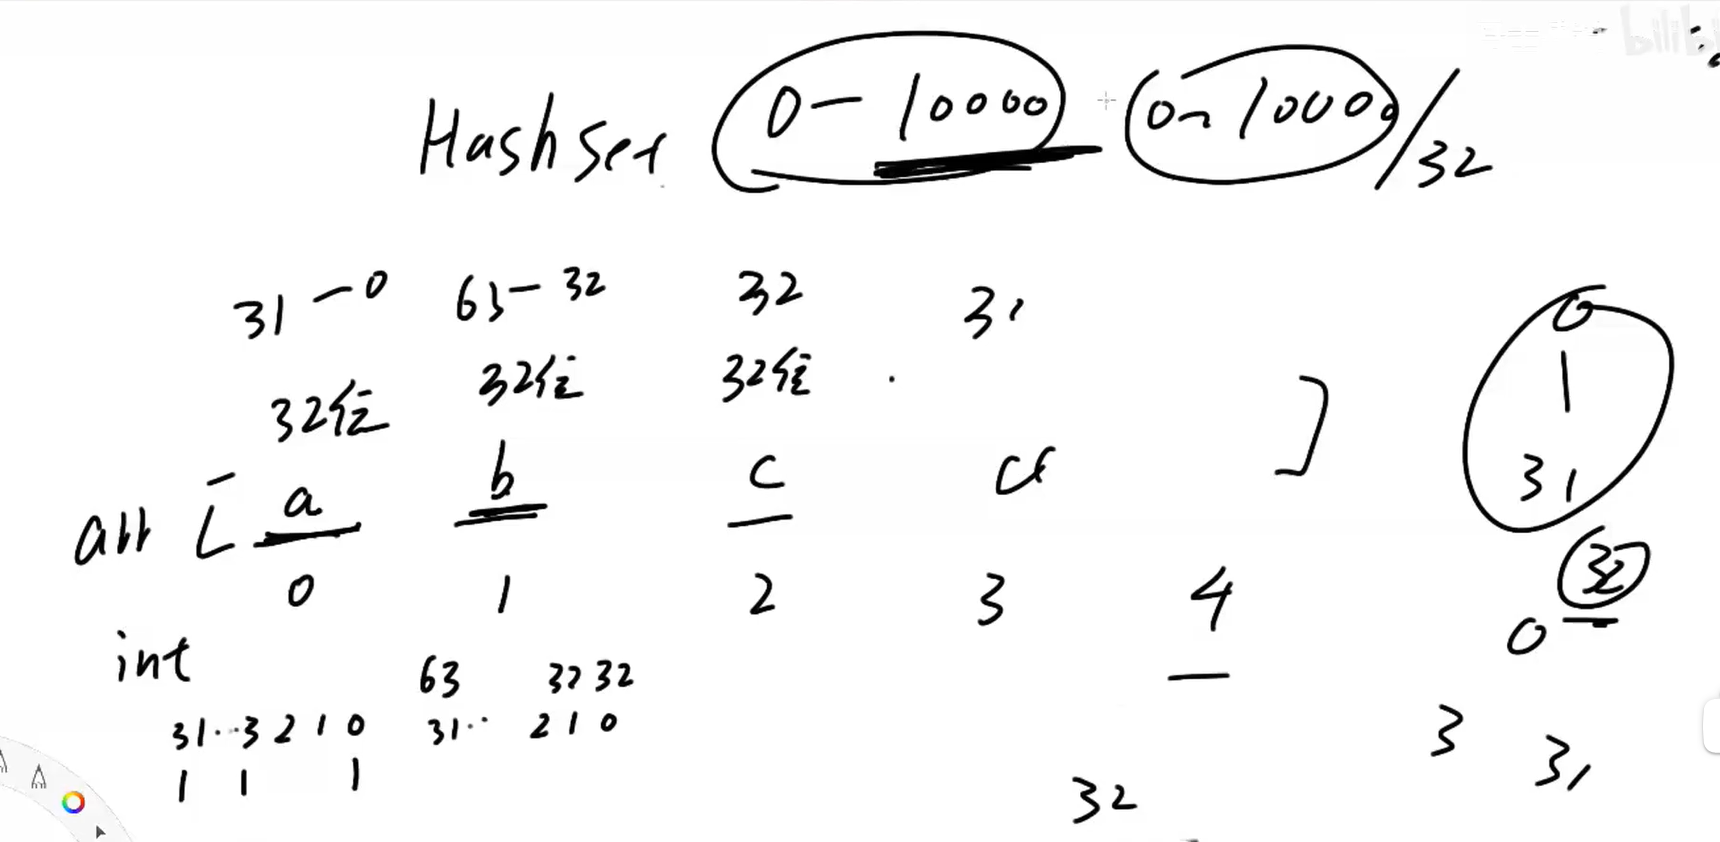 Hash Set 0 — 10000 0~10000/32
31 — 0 63 — 32 32 31 0
32位 32位 32位 1
arr [ a b c d ] 31
0 1 2 3 4 32
int 0
63 32
31··3 2 1 0 31·· 2 1 0 3 31
1 1 1 32